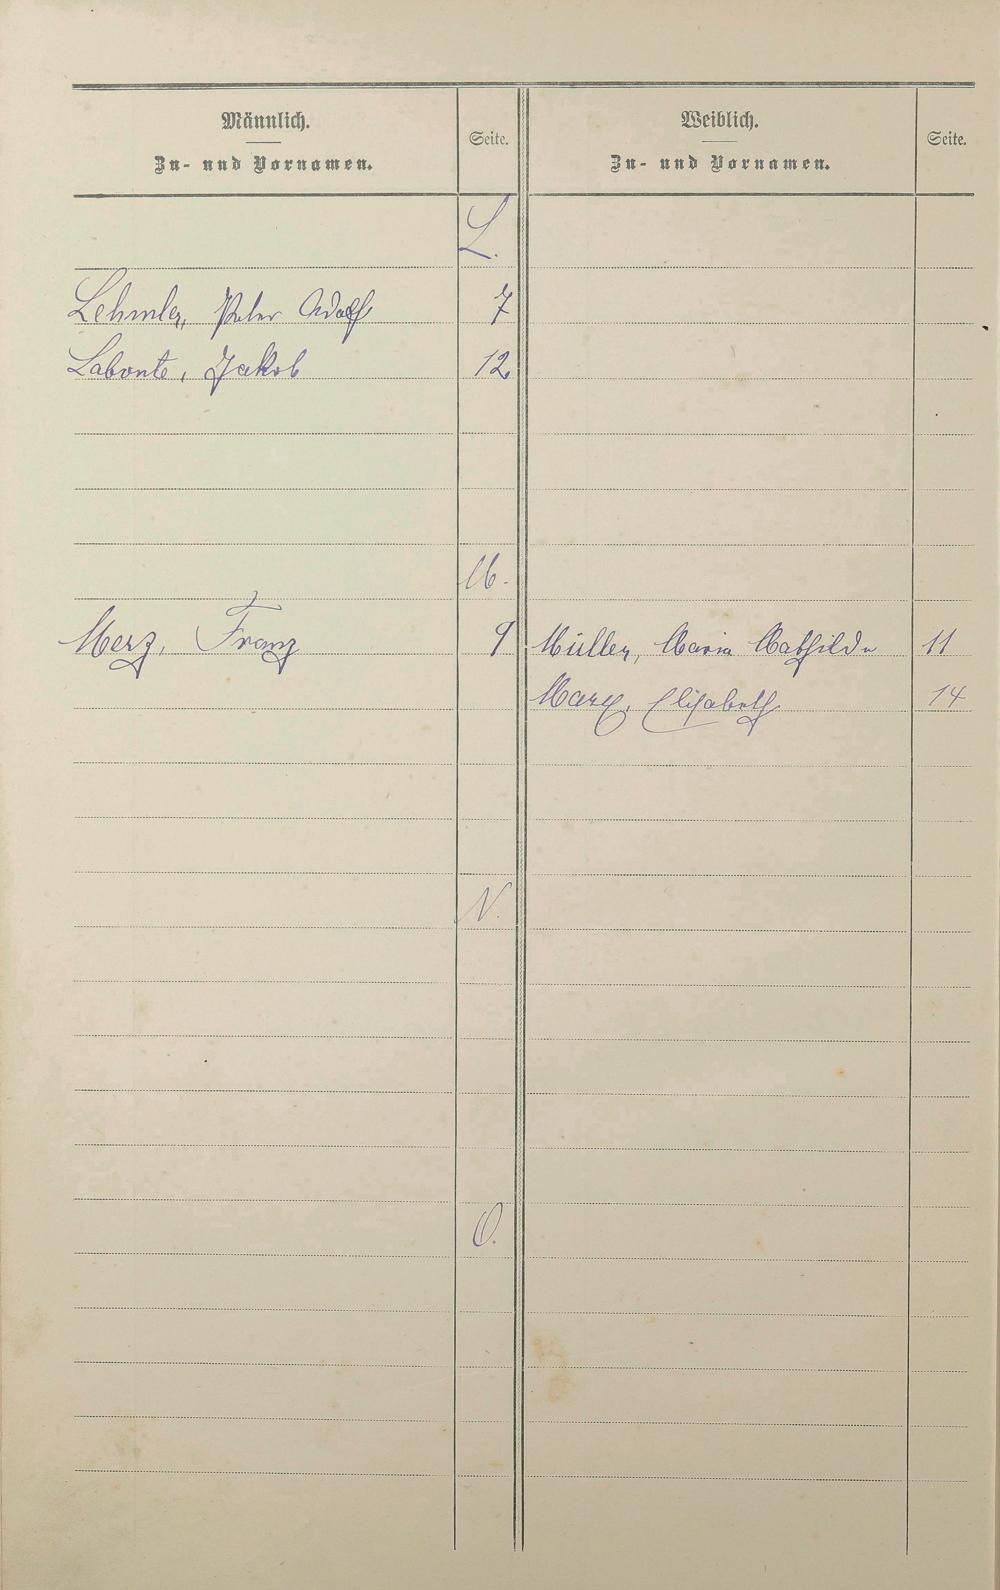 Männlich.
Zu- und Vornamen.
Seite.
Weiblich.
Zu- und Vornamen.
Seite.
L.
Lehmler, Peter Adolf 7
Labonte, Jakob 12
M.
Merz, Franz 9 Müller, Maria Mathilde 11
Marx, Elisabeth 14
N.
O.